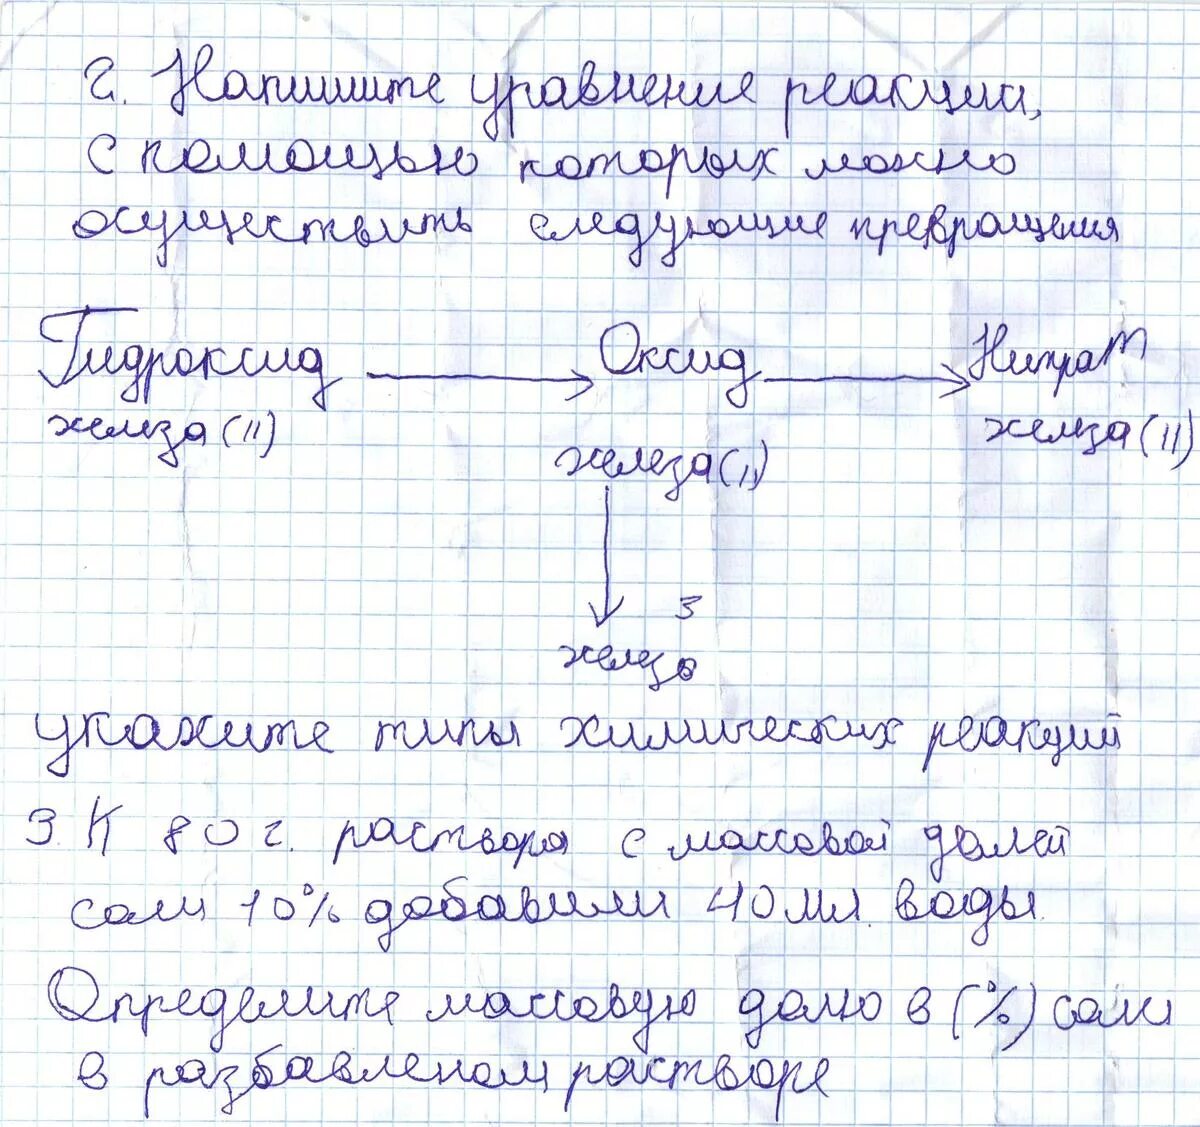 2. Напишите уравнение реакции,
с помощью которых можно
осуществить следующие превращения
Гидроксид → Оксид → Нитрат
железа (II) железа (II)
железа (II)
3
железо
укажите типы химических реакций
3. К 80 г. раствора с массовой долей
соли 10% добавили 40 мл воды.
Определите массовую долю в (%) соли
в разбавленом растворе